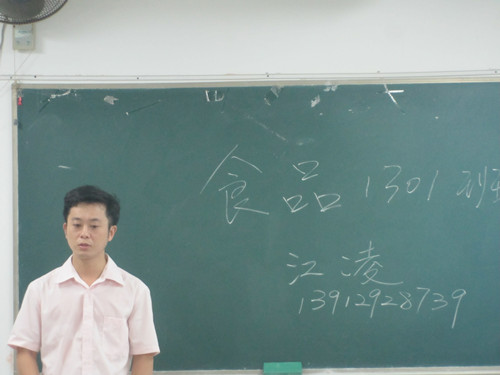 食品1301班
江凌
13912928739